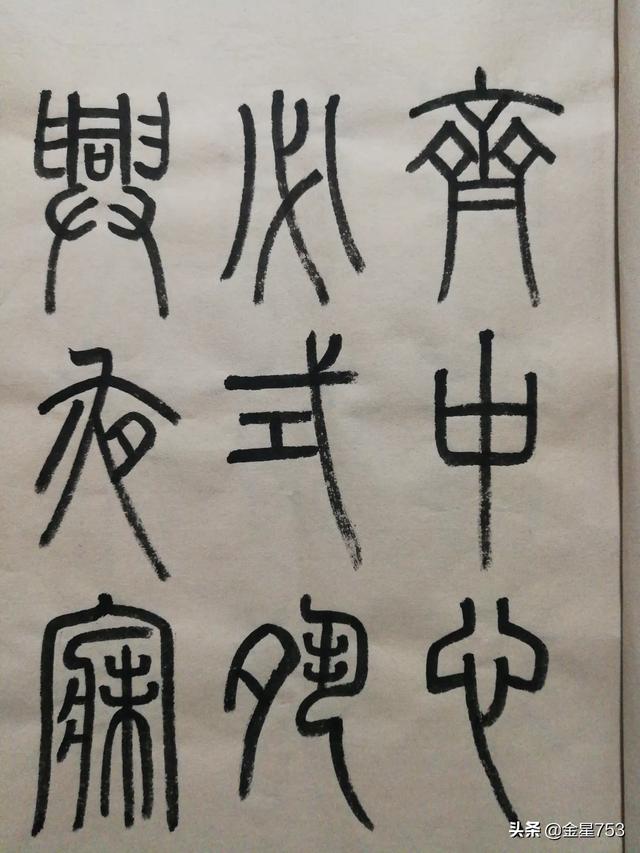 齊中心
必式夙
興夜寐
头条 @金星753